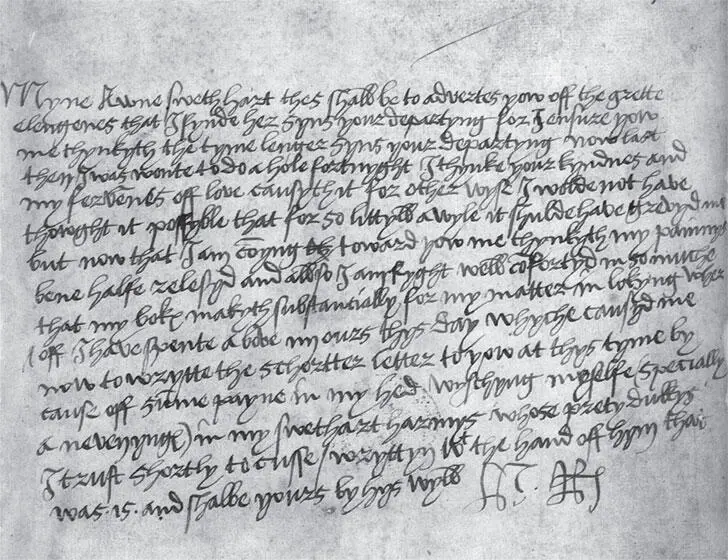 Myne Awne Swethhart thes shalbe to advertes yow off the grette
elengenes that I fynde her syns your departyng for I ensure yow
me thynkyth the tyme lenger syns your departyng now last
then I was wonte to do a hole fortnyght I thynke your kyndnes and
my fervenes off love causyth it for other wyse I wolde not have
thowght it possyble that for so littyll a wyle it shulde have grevyd me
but now that I am comyng toward yow me thynkyth my painnys
bene halfe relesyd and allso I am ryght well cofortyd in so muche
that my boke makyth substantially for my matter in lokyng wher
off I have spente a bove iiii ours thys day whyche causyd me
now to wrytte the schortter letter to yow at thys tyme by
cause off summe payne in my hed wyschyng my selfe (specially
a nevenyng) in my swethart harmys whose prety dukkys
I trust shortly to cusse wryttyn wt the hand off hym that
was. is. and shalbe yours by hys wyll H. R